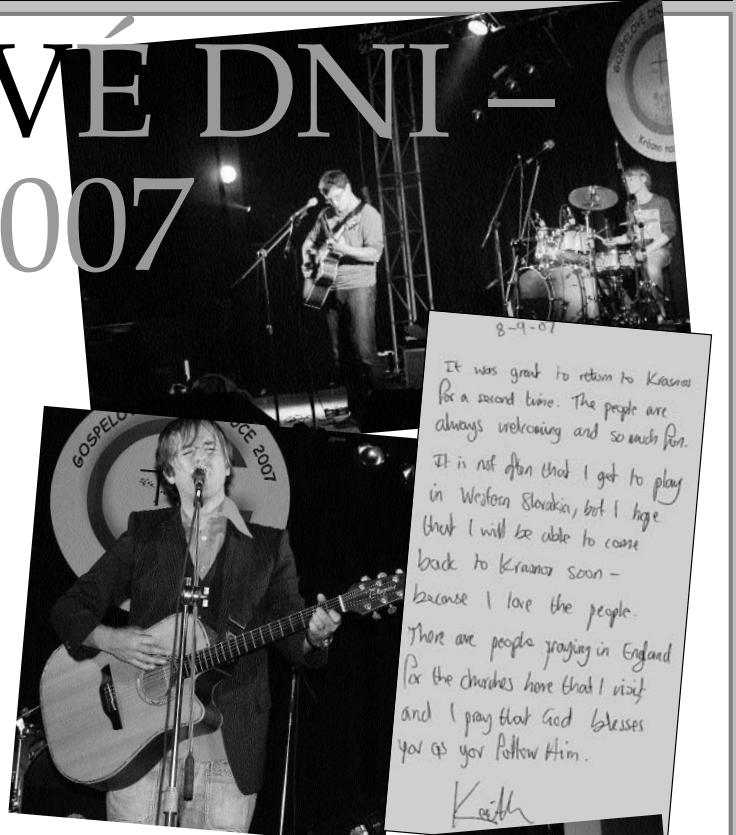 VÉ DNI –
007
GOSPELOVÉ DNI
Krásno nad
GOSPELOV
UCE 2007
8-9-07
It was great to return to Krasno
for a second time. The people are
always welcoming and so much fun.
It is not often that I get to play
in Western Slovakia, but I hope
that I will be able to come
back to Krasno soon –
because I love the people.
There are people praying in England
for the churches here that I visit
and I pray that God blesses
you as you follow Him.
Keith